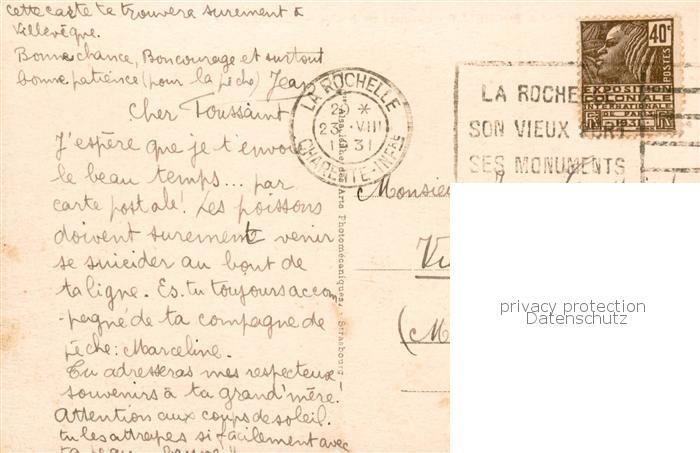 cette carte te trouvera surement à
Villevêque.
Bonne chance, Bon courage et surtout
bonne patience (pour la pêche) Jean
Cher Toussaint
J'espère que je t'envoie
le beau temps... par
carte postale! Les poissons
doivent surement venir
se suicider au bout de
ta ligne. Es. tu toujours accom
-pagné de ta compagne de
pêche: Marceline.
Tu adresseras mes respectueux
souvenirs à ta grand'mère!
Attention aux coups de soleil.
tu les attrapes si facilement avec
ta peau
LA ROCHELLE
23 VIII
31
CHARENTE-INFRE
LA ROCHE
SON VIEUX PORT
SES MONUMENTS
40c
POSTES
EXPOSITION
COLONIALE
INTERNATIONALE
DE PARIS
1931
des Arts Photomécaniques, Strasbourg
Monsieu
Vi
(M
privacy protection
Datenschutz